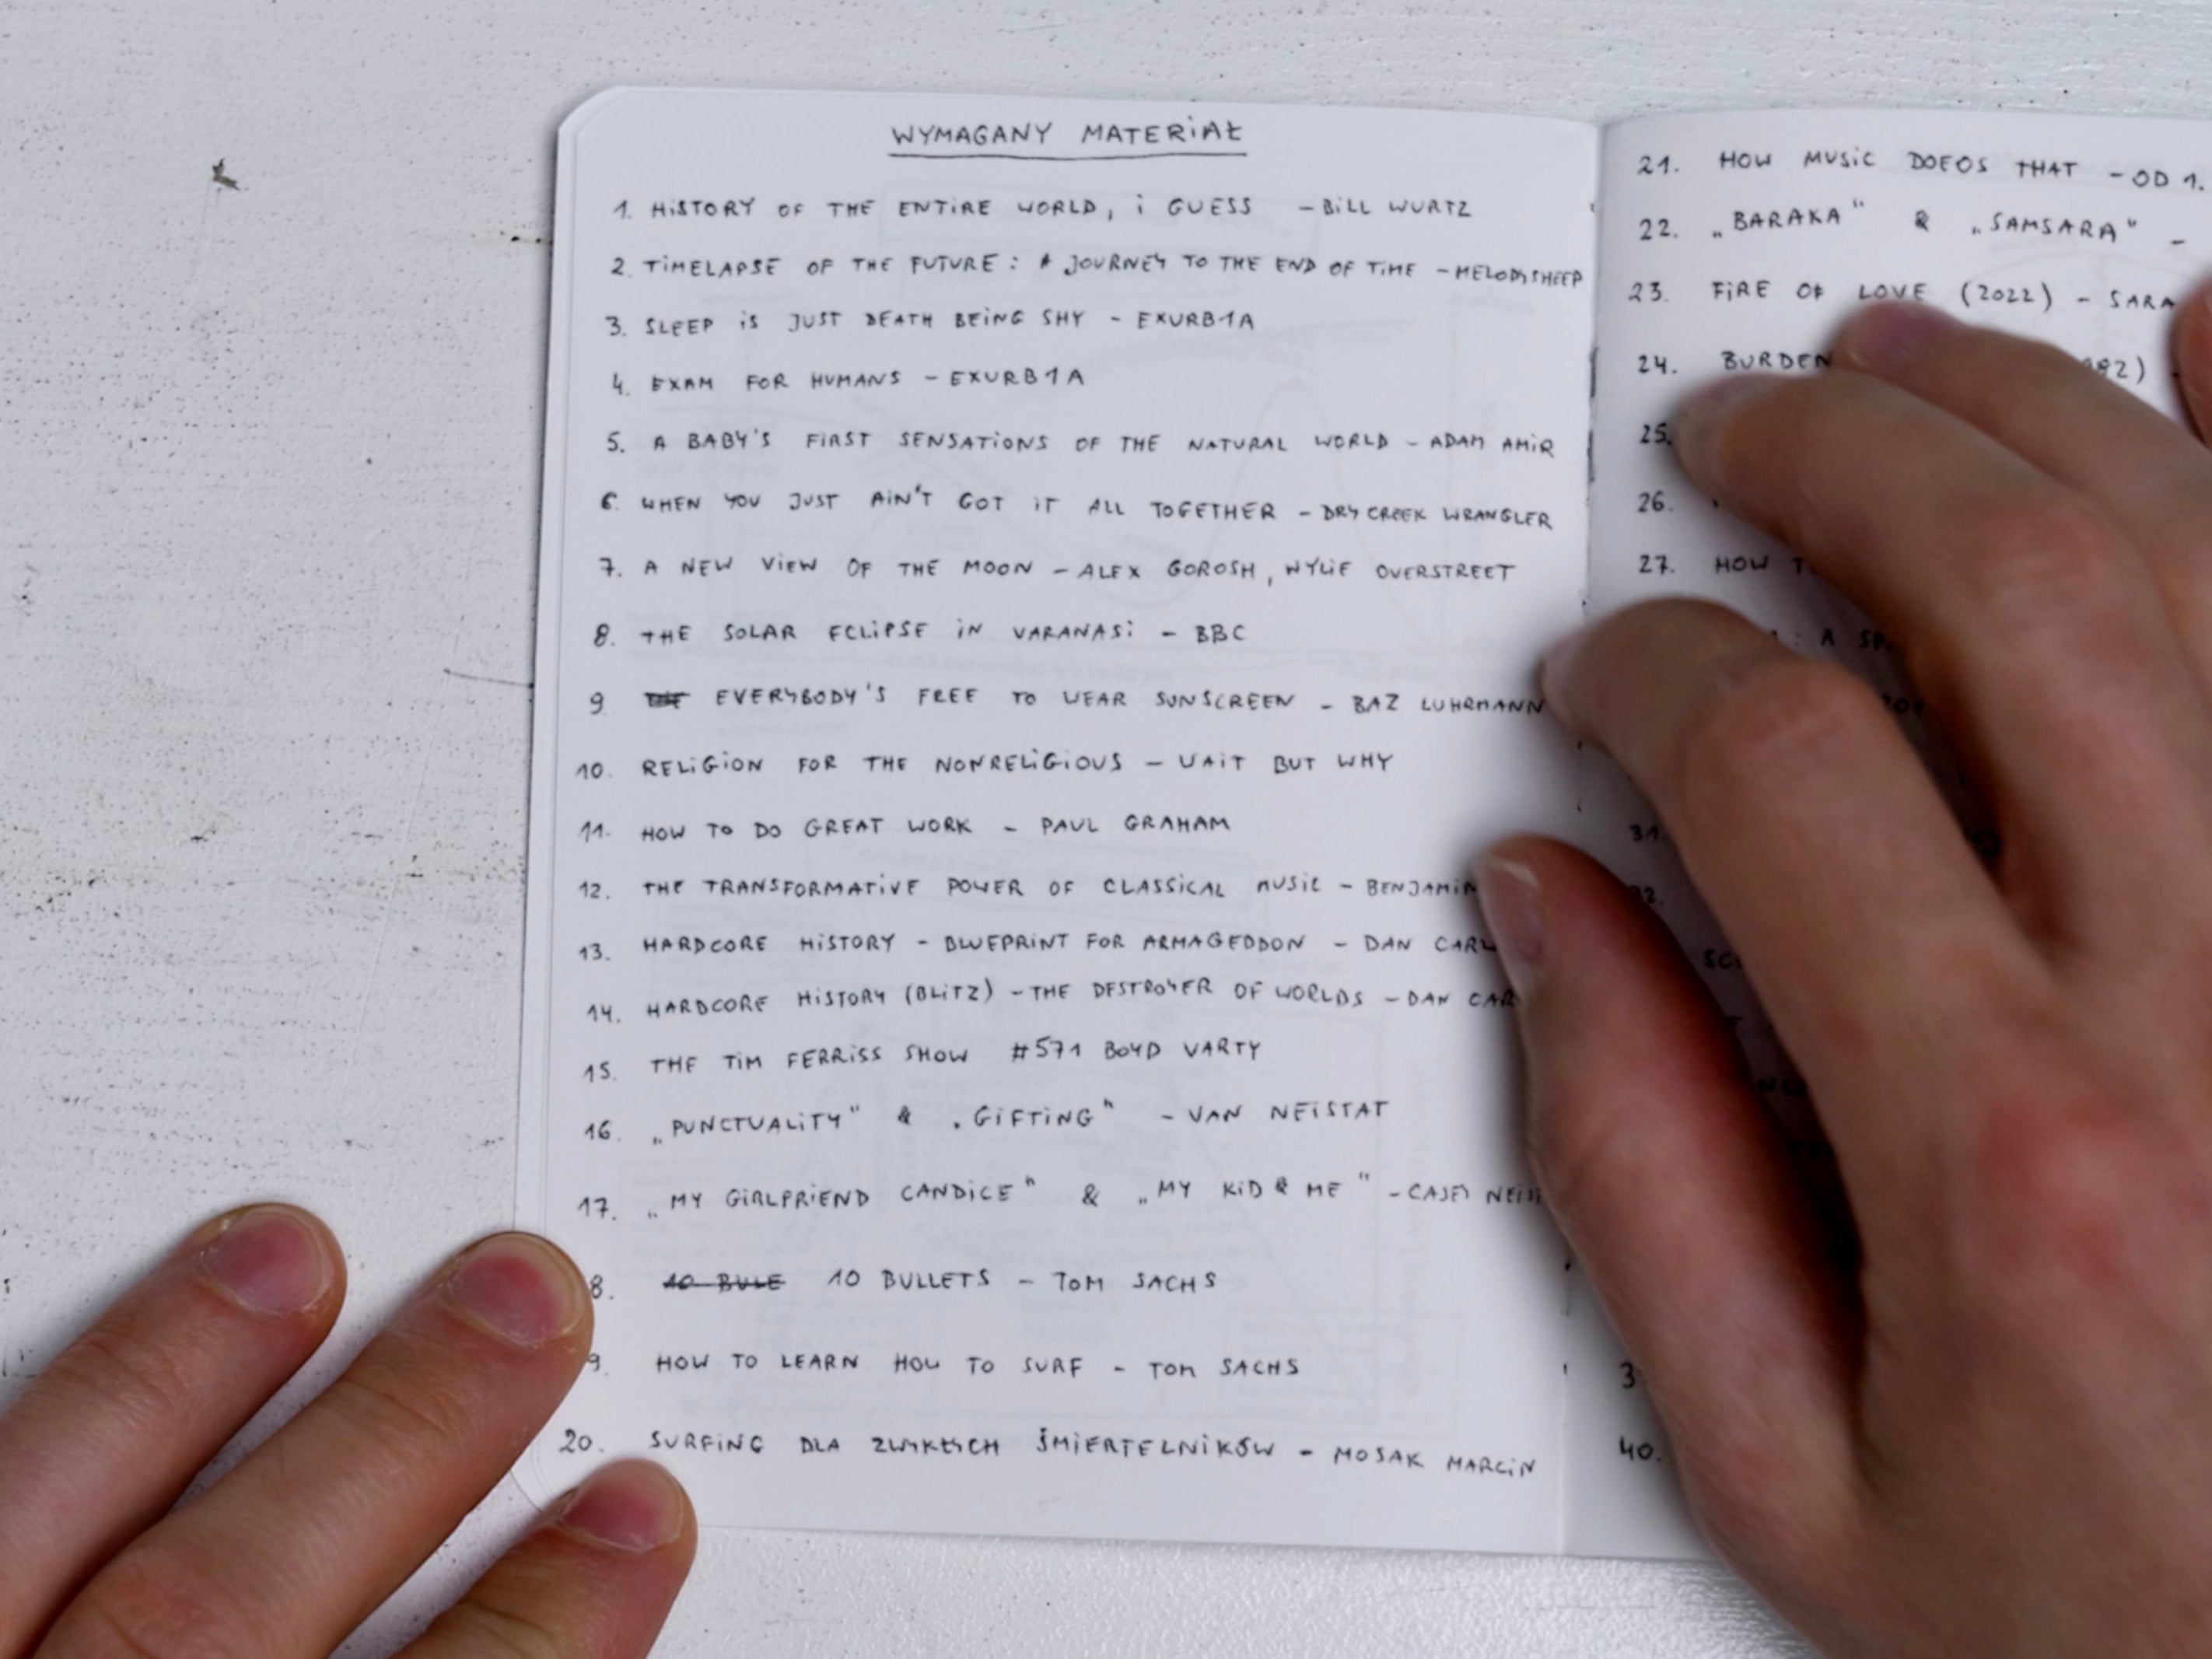 WYMAGANY MATERIAŁ
1. HISTORY OF THE ENTIRE WORLD, i GUESS - BILL WURTZ
2. TIMELAPSE OF THE FUTURE: A JOURNEY TO THE END OF TIME - MELODYSHEEP
3. SLEEP IS JUST DEATH BEING SHY - EXURB1A
4. EXAM FOR HUMANS - EXURB1A
5. A BABY'S FIRST SENSATIONS OF THE NATURAL WORLD - ADAM AMIR
6. WHEN YOU JUST AIN'T GOT IT ALL TOGETHER - DRY CREEK WRANGLER
7. A NEW VIEW OF THE MOON - ALEX GOROSH, WYLIE OVERSTREET
8. THE SOLAR ECLIPSE IN VARANASI - BBC
9 EVERYBODY'S FREE TO WEAR SUNSCREEN - BAZ LUHRMANN
10. RELIGION FOR THE NONRELIGIOUS - WAIT BUT WHY
11. HOW TO DO GREAT WORK - PAUL GRAHAM
12. THE TRANSFORMATIVE POWER OF CLASSICAL MUSIC - BENJAMIN
13. HARDCORE HISTORY - BLUEPRINT FOR ARMAGEDDON - DAN
14. HARDCORE HISTORY (BLITZ) - THE DESTROYER OF WORLDS - DAN
15. THE TIM FERRISS SHOW #571 BOYD VARTY
16. „PUNCTUALITY" & „GIFTING" - VAN NEISTAT
17. „MY GIRLFRIEND CANDICE" & „MY KID & ME" - CASEY
8. 10 BULE 10 BULLETS - TOM SACHS
9. HOW TO LEARN HOW TO SURF - TOM SACHS
20. SURFING DLA ZWYKŁYCH ŚMIERTELNIKÓW - MOSAK MARCIN
21. HOW MUSIC DOEOS THAT - OD 1.
22. „BARAKA" & „SAMSARA" -
23. FIRE OF LOVE (2022) - SARA
24. BURDEN
25.
26.
27. HOW
: A
31.
40.